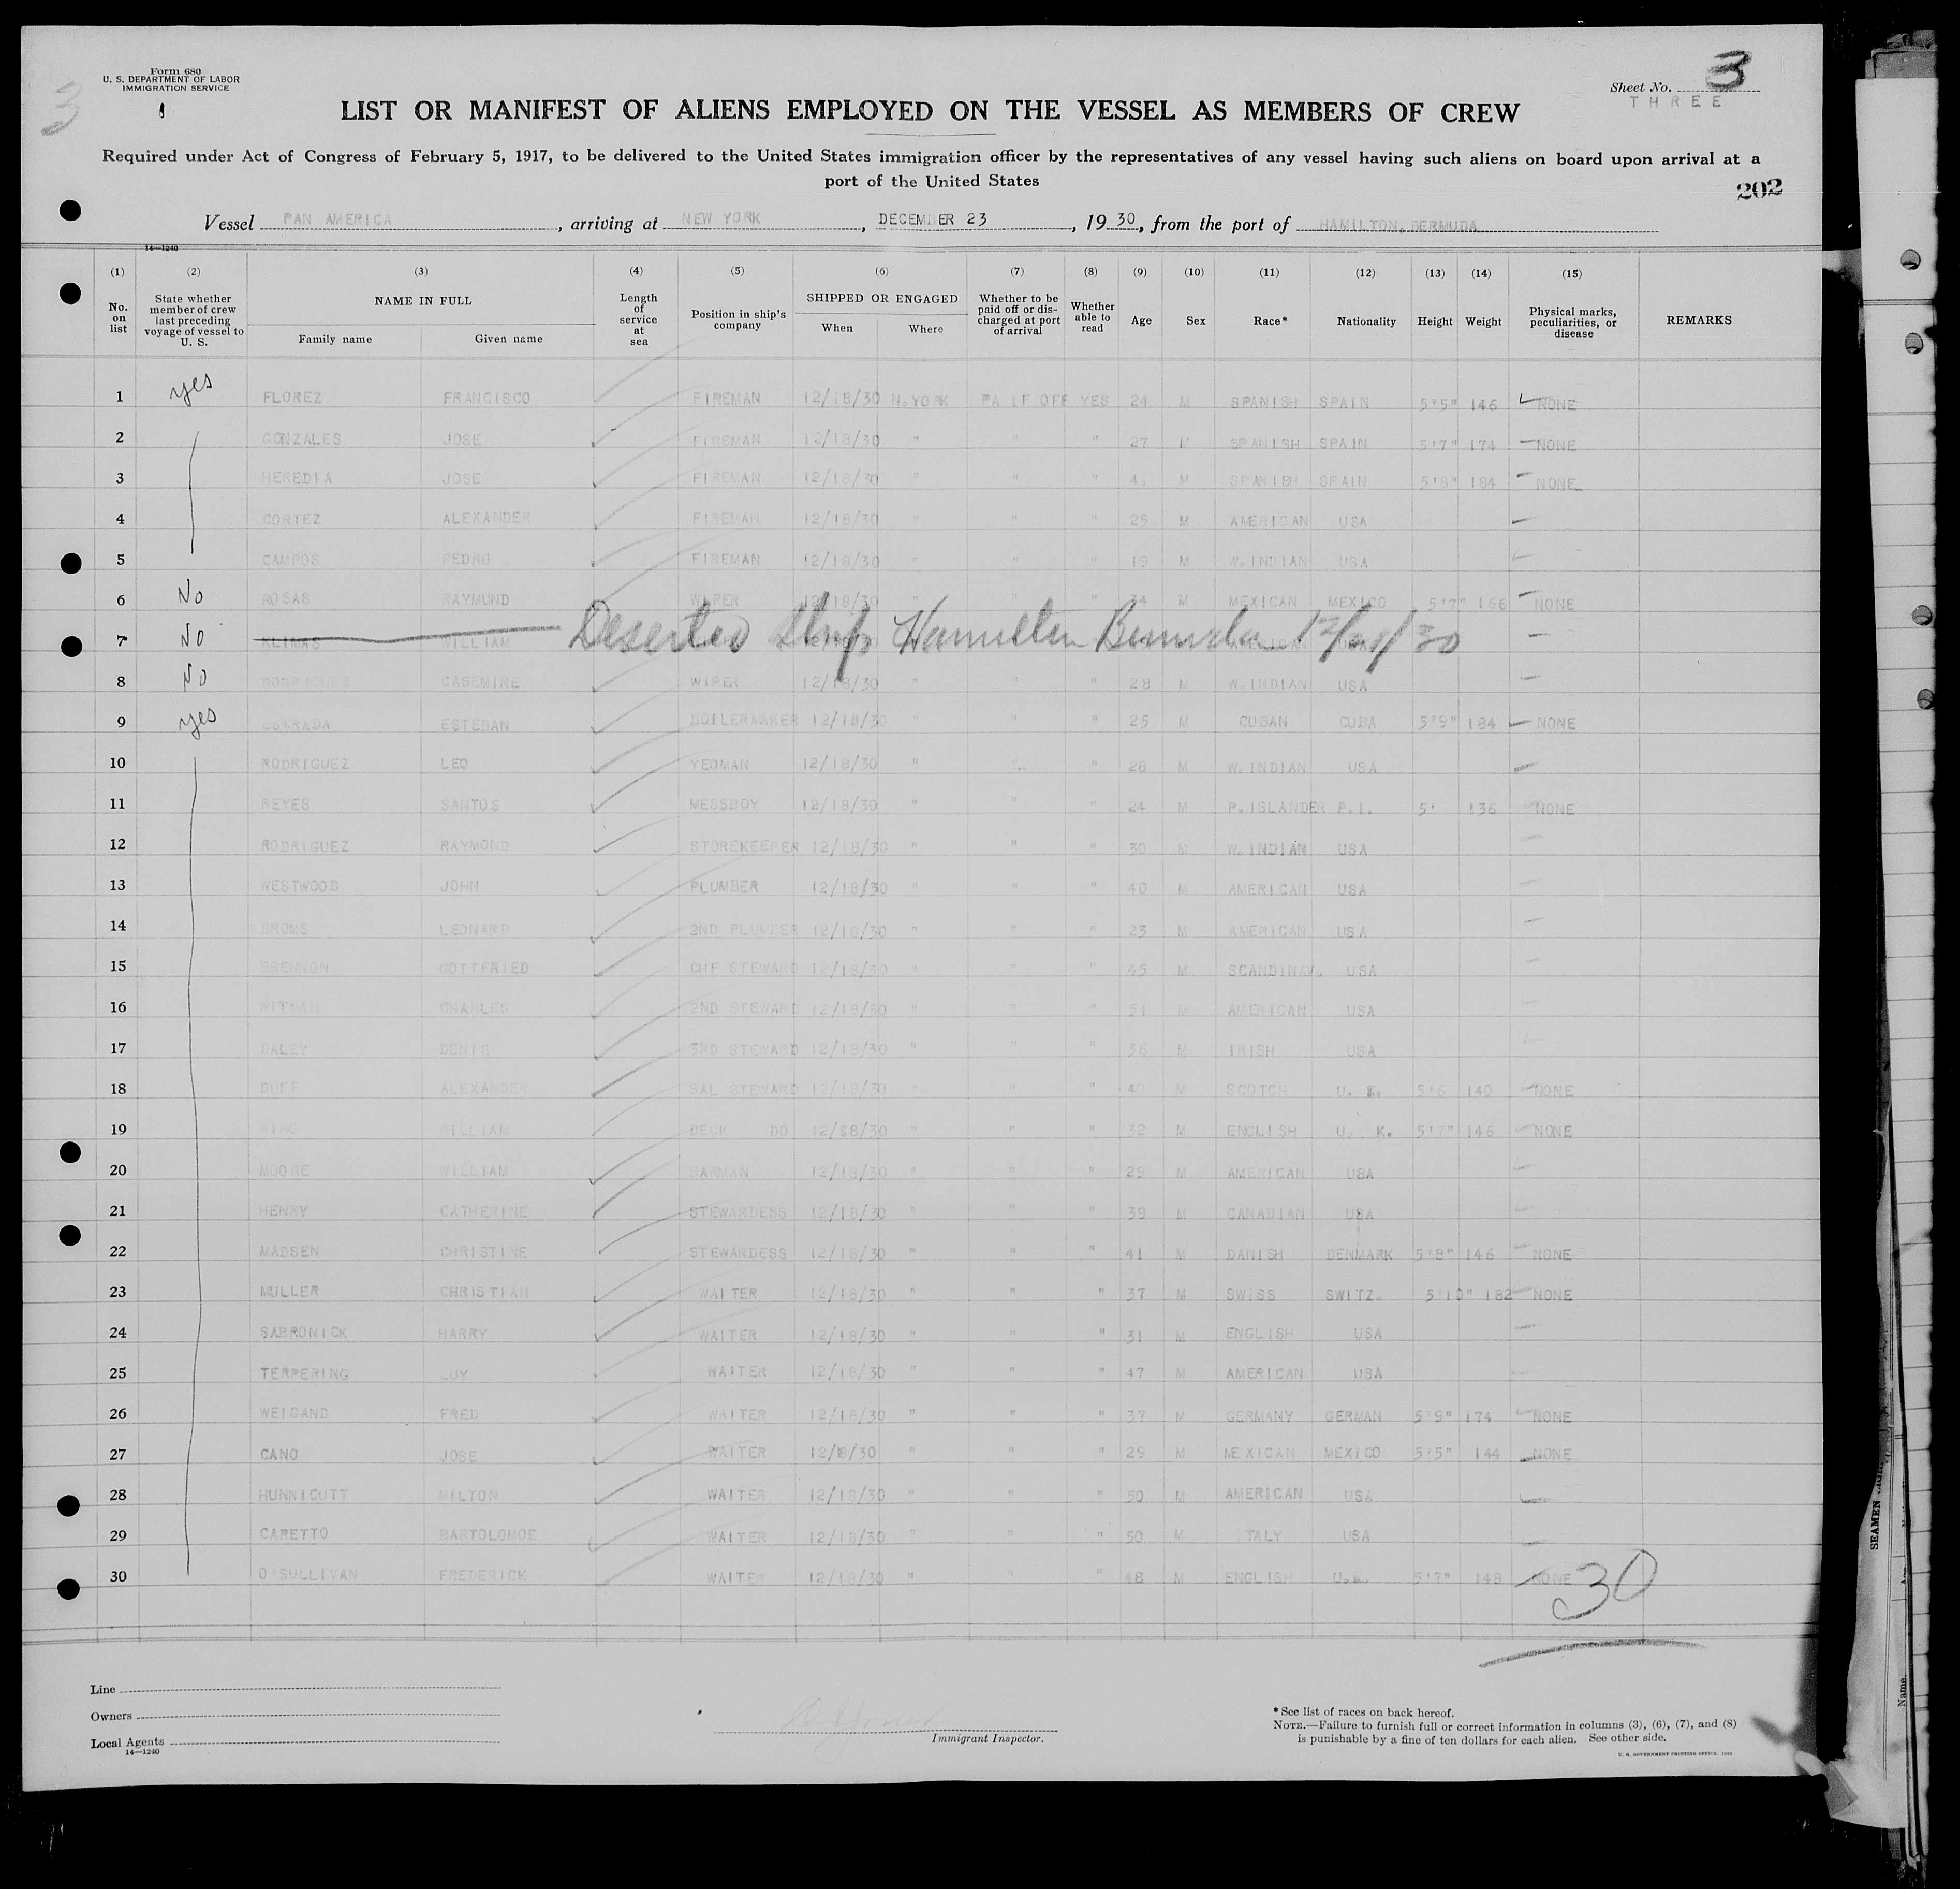 Form 680
U. S. DEPARTMENT OF LABOR
IMMIGRATION SERVICE
3
Sheet No. 3
THREE
LIST OR MANIFEST OF ALIENS EMPLOYED ON THE VESSEL AS MEMBERS OF CREW
Required under Act of Congress of February 5, 1917, to be delivered to the United States immigration officer by the representatives of any vessel having such aliens on board upon arrival at a
port of the United States
202
Vessel PAN AMERICA, arriving at NEW YORK, DECEMBER 23, 1930, from the port of HAMILTON, BERMUDA
14—1240
(1) (2) (3) (4) (5) (6) (7) (8) (9) (10) (11) (12) (13) (14) (15)
No. on list State whether member of crew last preceding voyage of vessel to U. S. NAME IN FULL Family name Given name Length of service at sea Position in ship's company SHIPPED OR ENGAGED When Where Whether to be paid off or discharged at port of arrival Whether able to read Age Sex Race* Nationality Height Weight Physical marks, peculiarities, or disease REMARKS
1 yes FLOREZ FRANCISCO FIREMAN 12/18/30 N.YORK PA IF OFF YES 24 M SPANISH SPAIN 5'5" 146 NONE
2 GONZALES JOSE FIREMAN 12/18/30 " " " 27 M SPANISH SPAIN 5'7" 174 NONE
3 HEREDIA JOSE FIREMAN 12/18/30 " " " M SPANISH SPAIN 5'8" 184 NONE
4 CORTEZ ALEXANDER FIREMAN 12/18/30 " " " 25 M AMERICAN USA
5 CAMPOS PEDRO FIREMAN 12/18/30 " " " 19 M W. INDIAN USA
6 No ROSAS RAYMUND WIPER 12/18/30 " " " 34 M MEXICAN MEXICO 5'7" 166 NONE
7 No KLIMAS WILLIAM Deserted Ship Hamilton Bermuda
8 No RODRIGUEZ CASEMIRE WIPER 12/18/30 " " " 28 M W. INDIAN USA
9 yes ESTRADA ESTEBAN BOILERMAKER 12/18/30 " " " 25 M CUBAN CUBA 5'9" 184 NONE
10 RODRIGUEZ LEO YEOMAN 12/18/30 " " " 28 M W. INDIAN USA
11 REYES SANTOS MESSBOY 12/18/30 " " " 24 M P. ISLANDER P.I. 5' 136 NONE
12 RODRIGUEZ RAYMOND STOREKEEPER 12/18/30 " " " 30 M W. INDIAN USA
13 WESTWOOD JOHN PLUMBER 12/18/30 " " " 40 M AMERICAN USA
14 BROMS LEONARD 2ND PLUMBER 12/18/30 " " " 23 M AMERICAN USA
15 BRENNON GOTTFRIED CHF STEWARD 12/18/30 " " " 45 M SCANDINAV. USA
16 WITMAN CHARLES 2ND STEWARD 12/18/30 " " " 51 M AMERICAN USA
17 DALEY DENIS 3RD STEWARD 12/18/30 " " " 36 M IRISH USA
18 DUFF ALEXANDER SAL STEWARD 12/18/30 " " " 40 M SCOTCH U. K. 5'6 140 NONE
19 KING WILLIAM DECK DO 12/88/30 " " " 32 M ENGLISH U. K. 5'7" 146 NONE
20 MOORE WILLIAM BARMAN 12/18/30 " " " 29 M AMERICAN USA
21 HENRY CATHERINE STEWARDESS 12/18/30 " " " 39 M CANADIAN USA
22 MADSEN CHRISTINE STEWARDESS 12/18/30 " " " 41 M DANISH DENMARK 5'8" 146 NONE
23 MULLER CHRISTIAN WAITER 12/18/30 " " " 37 M SWISS SWITZ. 5'10" 182 NONE
24 SABRONICK HARRY WAITER 12/18/30 " " " 31 M ENGLISH USA
25 TERPERING WAITER 12/18/30 " " " 47 M AMERICAN USA
26 WEIGAND FRED WAITER 12/18/30 " " " 37 M GERMANY GERMAN 5'9" 174 NONE
27 CANO JOSE WAITER 12/18/30 " " " 29 M MEXICAN MEXICO 5'5" 144 NONE
28 HUNNICUTT MILTON WAITER 12/18/30 " " " 50 M AMERICAN USA
29 CARETTO BARTOLOMOE WAITER 12/18/30 " " " 50 M ITALY USA
30 O'SULLIVAN FREDERICK WAITER 12/18/30 " " " 48 M ENGLISH U.K. 5'7" 148 NONE
30
Line
Owners
Local Agents
14—1240
Immigrant Inspector.
* See list of races on back hereof.
NOTE.—Failure to furnish full or correct information in columns (3), (6), (7), and (8)
is punishable by a fine of ten dollars for each alien. See other side.
U. S. GOVERNMENT PRINTING OFFICE
SEAMEN
Name